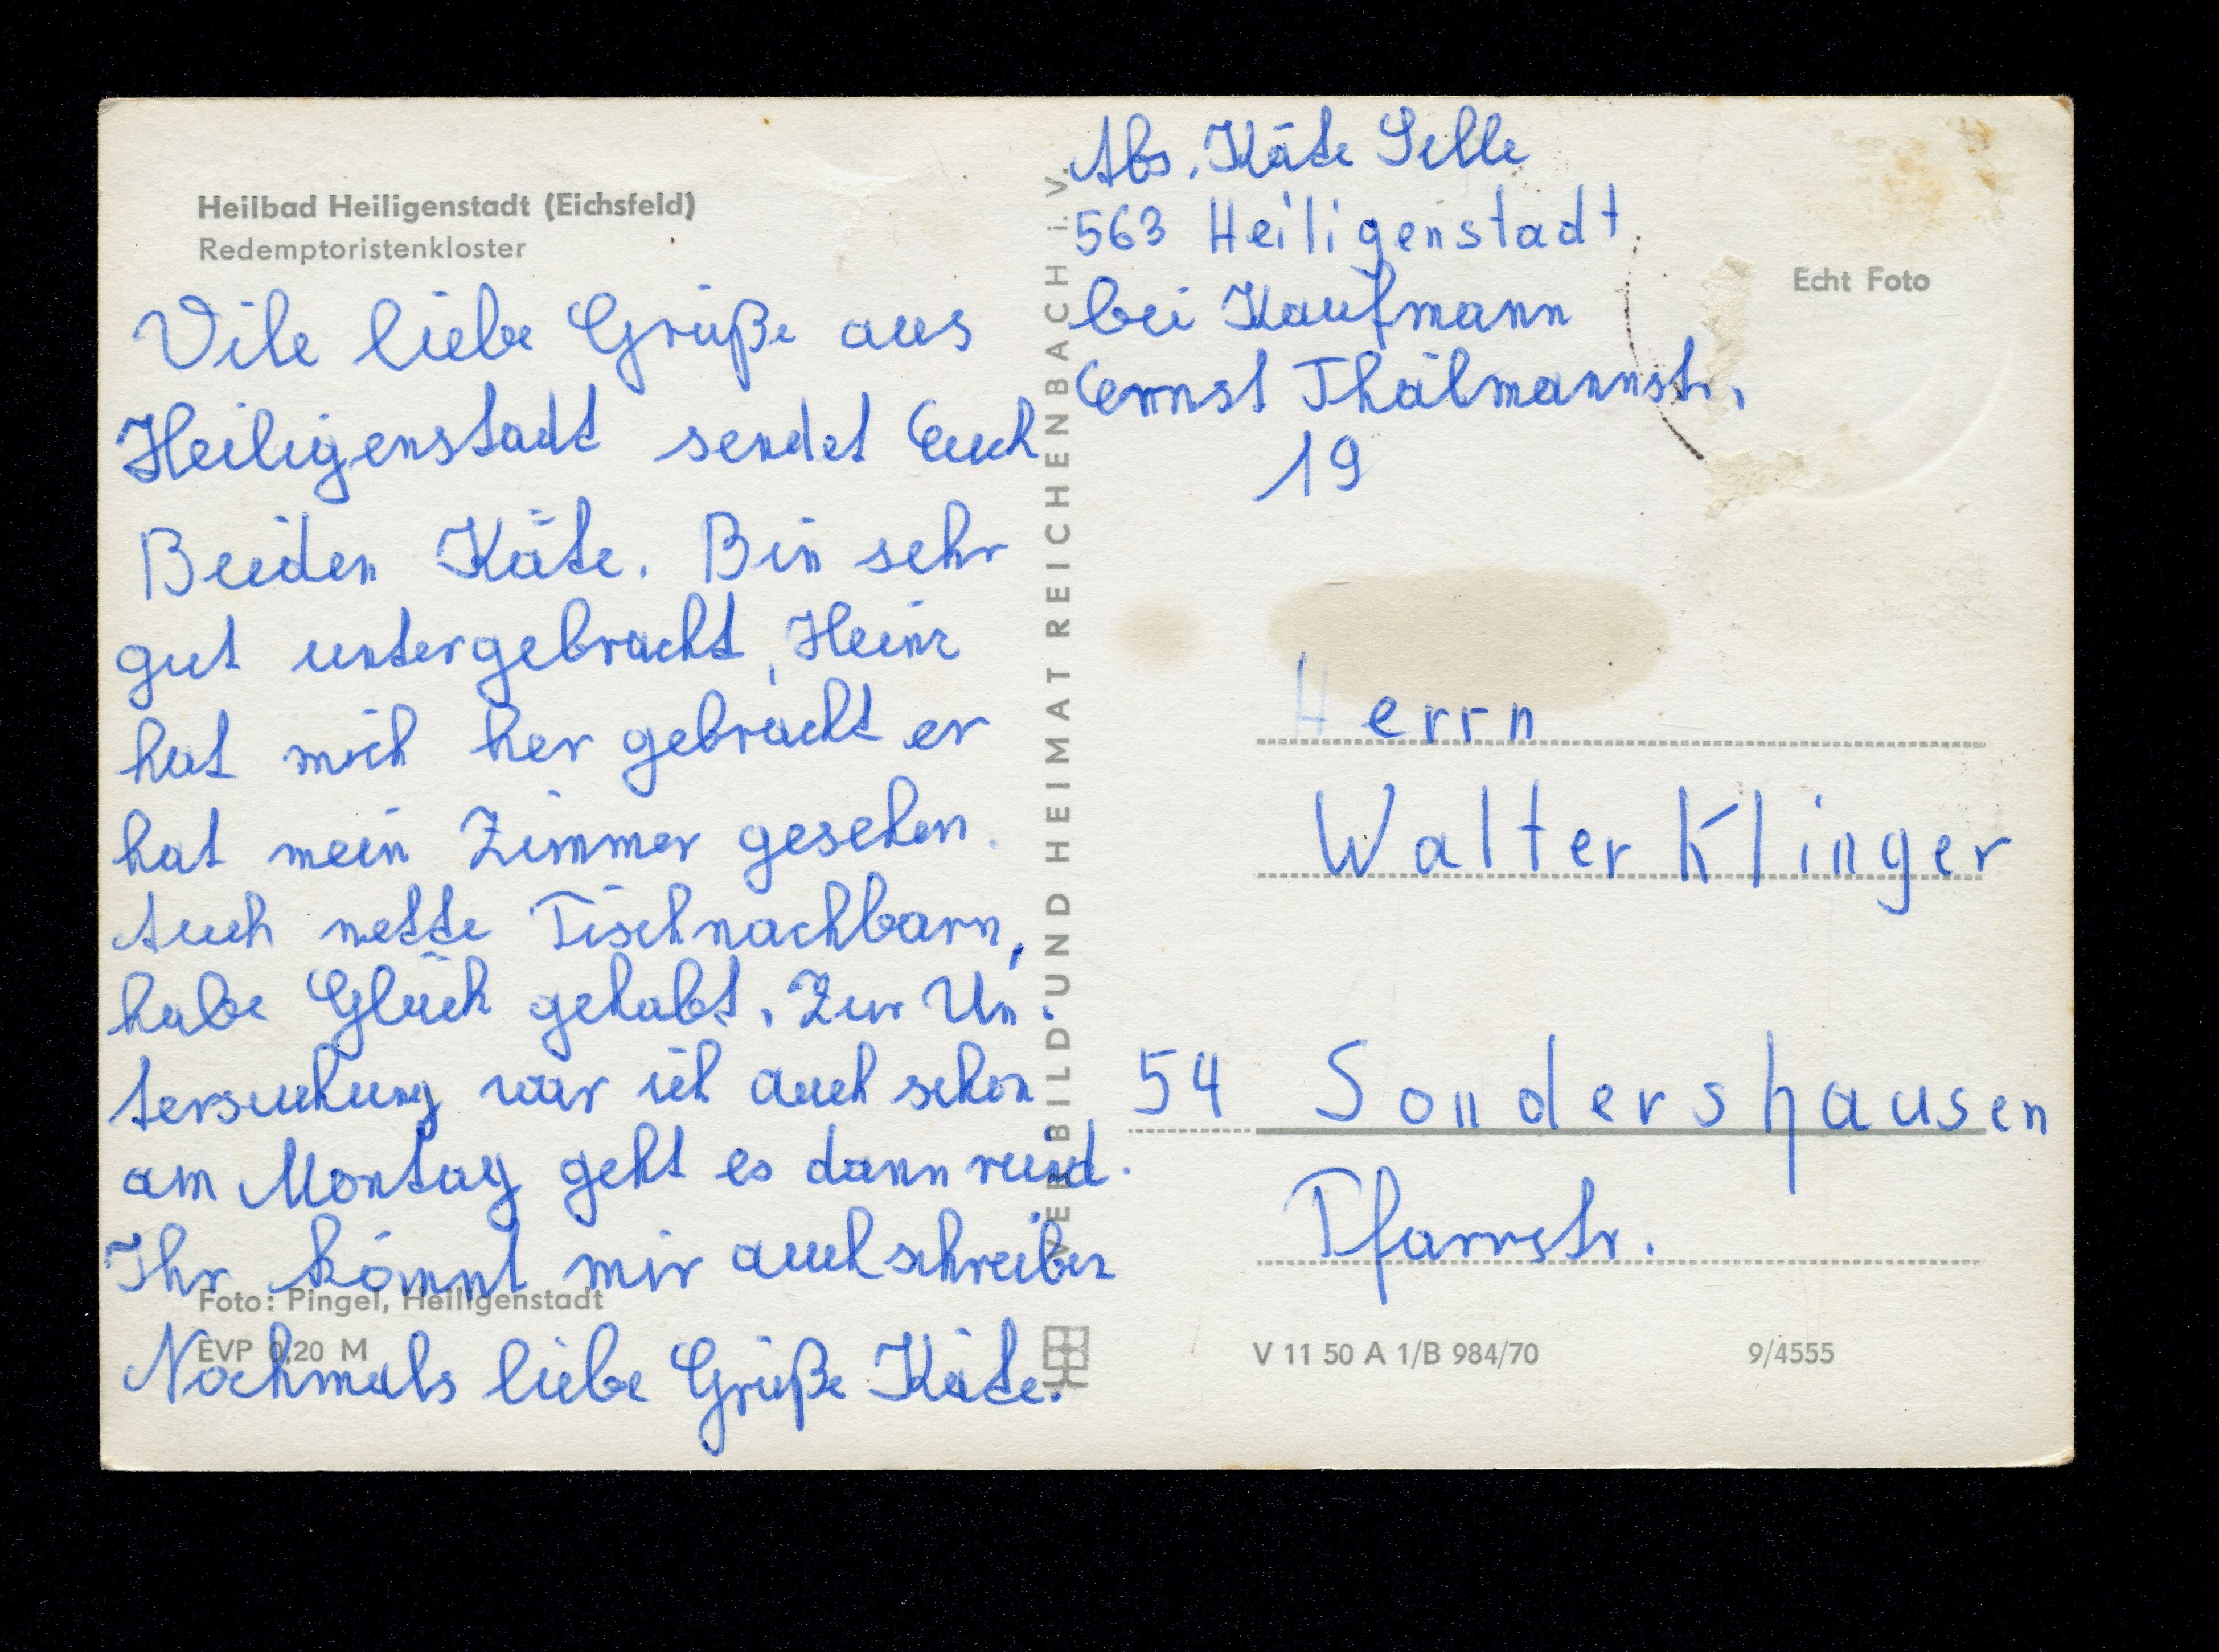 Heilbad Heiligenstadt (Eichsfeld)
Redemptoristenkloster
Vile liebe Grüße aus
Heiligenstadt sendet Euch
Beiden Käte. Bin sehr
gut untergebracht, Heinz
hat mich her gebracht er
hat mein Zimmer gesehen.
Auch nette Tischnachbarn,
habe Glück gehabt. Zur Un-
tersuchung war ich auch schon
am Montag geht es dann rund.
Ihr könnt mir auch schreiben
Foto: Pingel, Heiligenstadt
EVP 0,20 M
Nochmals liebe Grüße Käte.
VEB BILD UND HEIMAT REICHENBACH i. V.
Abs. Käte Selle
563 Heiligenstadt
bei Kaufmann
Ernst Thälmannstr.
19
Echt Foto
Herrn
Walter Klinger
54 Sondershausen
Pfarrstr.
V 11 50 A 1/B 984/70 9/4555